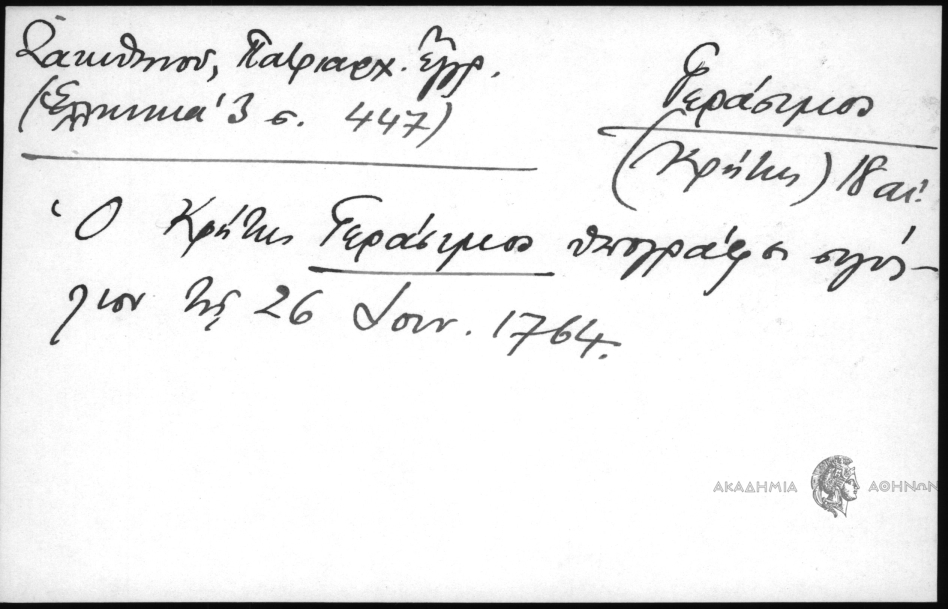 Ζακυθηνού, Πατριαρχ. Ἔγγρ.
(Ἑλληνικά 3 σ. 447)
Γεράσιμος
(Κρήτης) 18 αἰ.
Ὁ Κρήτης Γεράσιμος ὑπογράφει σιγίλ-
λιον τῆς 26 Ἰουν. 1764.
ΑΚΑΔΗΜΙΑ ΑΘΗΝΩΝ